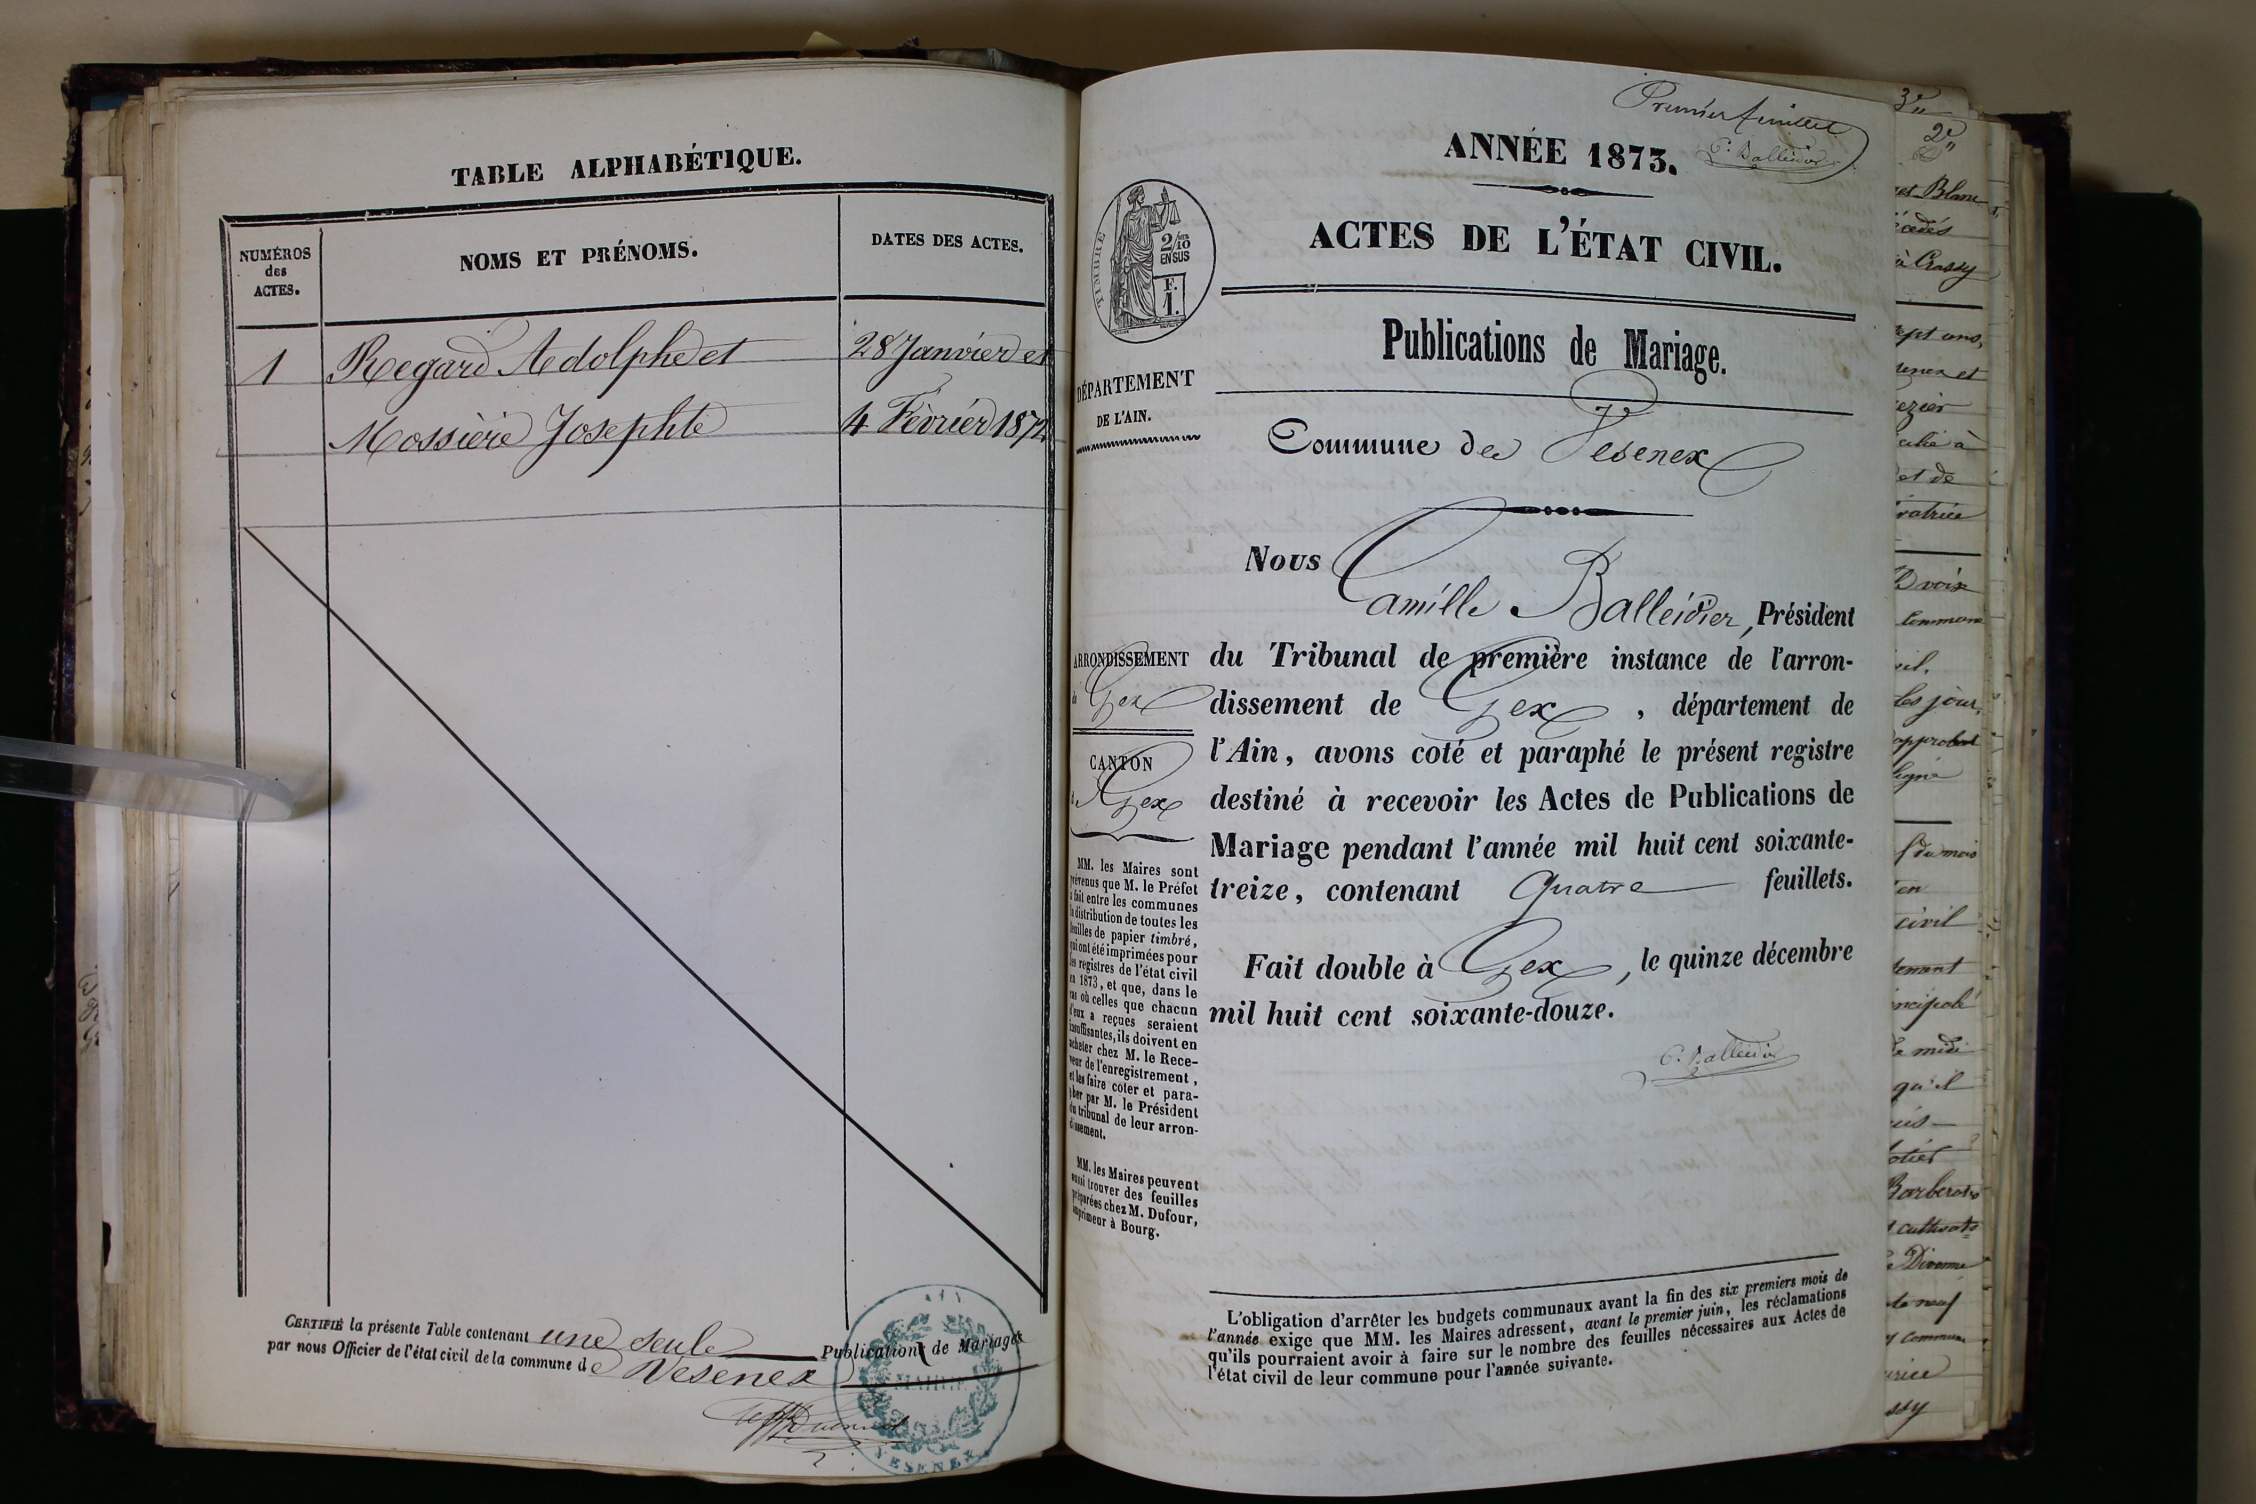 TABLE ALPHABÉTIQUE.
NUMÉROS
des
ACTES.
NOMS ET PRÉNOMS.
DATES DES ACTES.
1 Regard Adolphe et 28 Janvier et
Mossière Josephte 4 Février 1872
CERTIFIÉ la présente Table contenant une seule Publication de Mariage
par nous Officier de l'état civil de la commune de Vesenex
MAIRIE
VESENEX
Premier feuillet
C. Balleidier
ANNÉE 1873.
ACTES DE L'ÉTAT CIVIL.
TIMBRE
2/10
EN SUS
F.
1.
Publications de Mariage.
DÉPARTEMENT
DE L'AIN.
Commune de Vesenex
Nous Camille Balleidier, Président
du Tribunal de première instance de l'arron-
dissement de Gex, département de
l'Ain, avons coté et paraphé le présent registre
destiné à recevoir les Actes de Publications de
Mariage pendant l'année mil huit cent soixante-
treize, contenant quatre feuillets.
Fait double à Gex, le quinze décembre
mil huit cent soixante-douze.
C. Balleidier
ARRONDISSEMENT
de Gex
CANTON
de Gex
MM. les Maires sont
prévenus que M. le Préfet
a fait entre les communes
la distribution de toutes les
feuilles de papier timbré,
qui ont été imprimées pour
les registres de l'état civil
en 1873, et que, dans le
cas où celles que chacun
d'eux a reçues seraient
insuffisantes, ils doivent en
acheter chez M. le Rece-
veur de l'enregistrement,
et les faire coter et para-
pher par M. le Président
du tribunal de leur arron-
dissement.
MM. les Maires peuvent
aussi trouver des feuilles
préparées chez M. Dufour,
imprimeur à Bourg.
L'obligation d'arrêter les budgets communaux avant la fin des six premiers mois de
l'année exige que MM. les Maires adressent, avant le premier juin, les réclamations
qu'ils pourraient avoir à faire sur le nombre des feuilles nécessaires aux Actes de
l'état civil de leur commune pour l'année suivante.
3e
2e
et Blanc
à Crassy
et de
voix
les jour,
f du mois
en
civil
midi
qu'il
Divonne
neuf